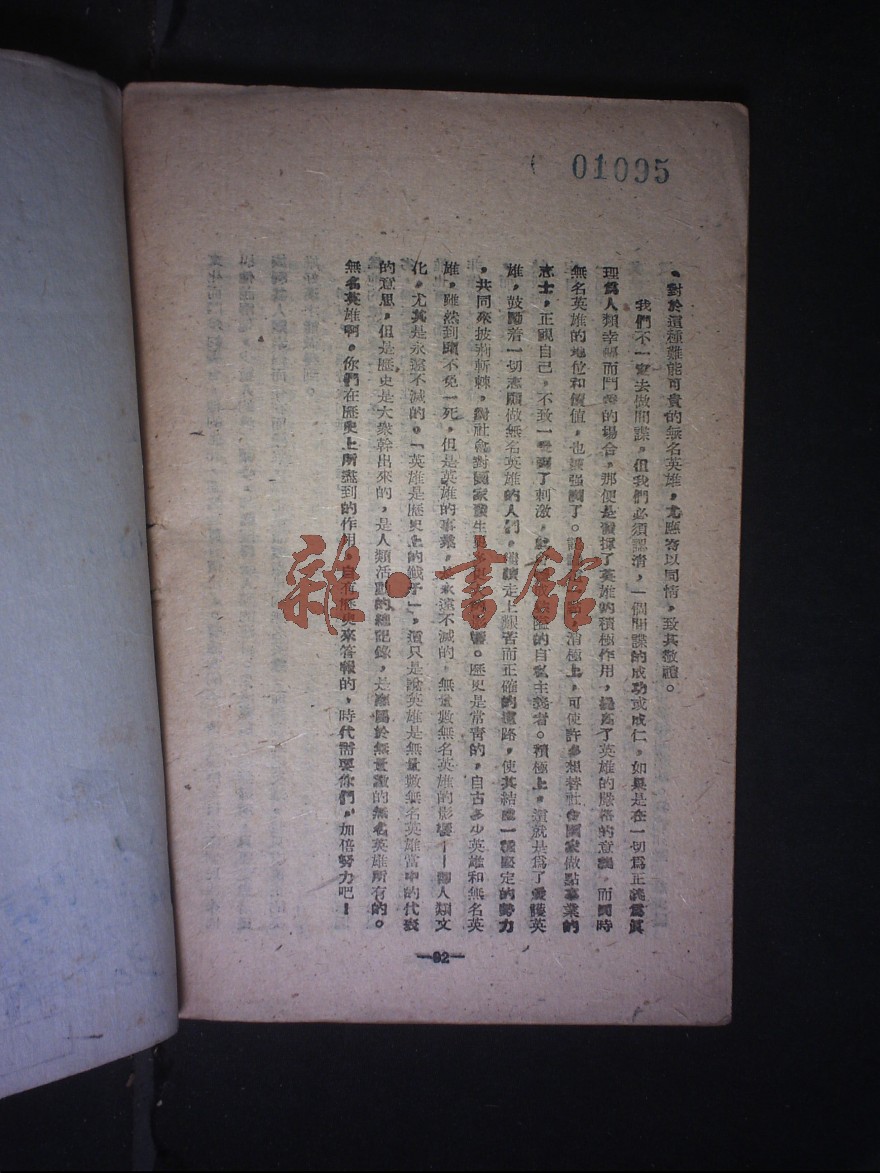 01095
，對於這種難能可貴的無名英雄，尤應寄以同情，致其敬禮。
我們不一定去做間諜，但我們必須認清，一個間諜的成功或成仁，如果是在一切爲正義爲眞
理爲人類幸福而鬥爭的場合，那便是發揮了英雄的積極作用，提高了英雄的嚴格的意義，而同時
無名英雄的地位和價值，也被强調了。消極上，可使許多想替社會國家做點事業的
志士，正視自己，不致一受到了刺激，的自私主義者。積極上，這就是爲了愛護英
雄，鼓勵着一切志願做無名英雄的人們，繼續走上艱苦而正確的道路，使其結成一種堅定的勢力
，共同來披荆斬棘，對社會對國家發生更多更大的影響。歷史是常靑的，自古多少英雄和無名英
雄，雖然到頭不免一死，但是英雄的事業，是永遠不滅的，無量數無名英雄的影響——個人類文
化，尤其是永遠不滅的。「英雄是歷史上的籤子」，這只是說英雄是無量數無名英雄當中的代表
的意思，但是歷史是大衆幹出來的，是人類活動的總記錄，是應屬於無量數的無名英雄所有的。
無名英雄啊。你們在歷史上所盡到的作用，自有歷史來答報的，時代需要你們，加倍努力吧！
—92—
雜·書館